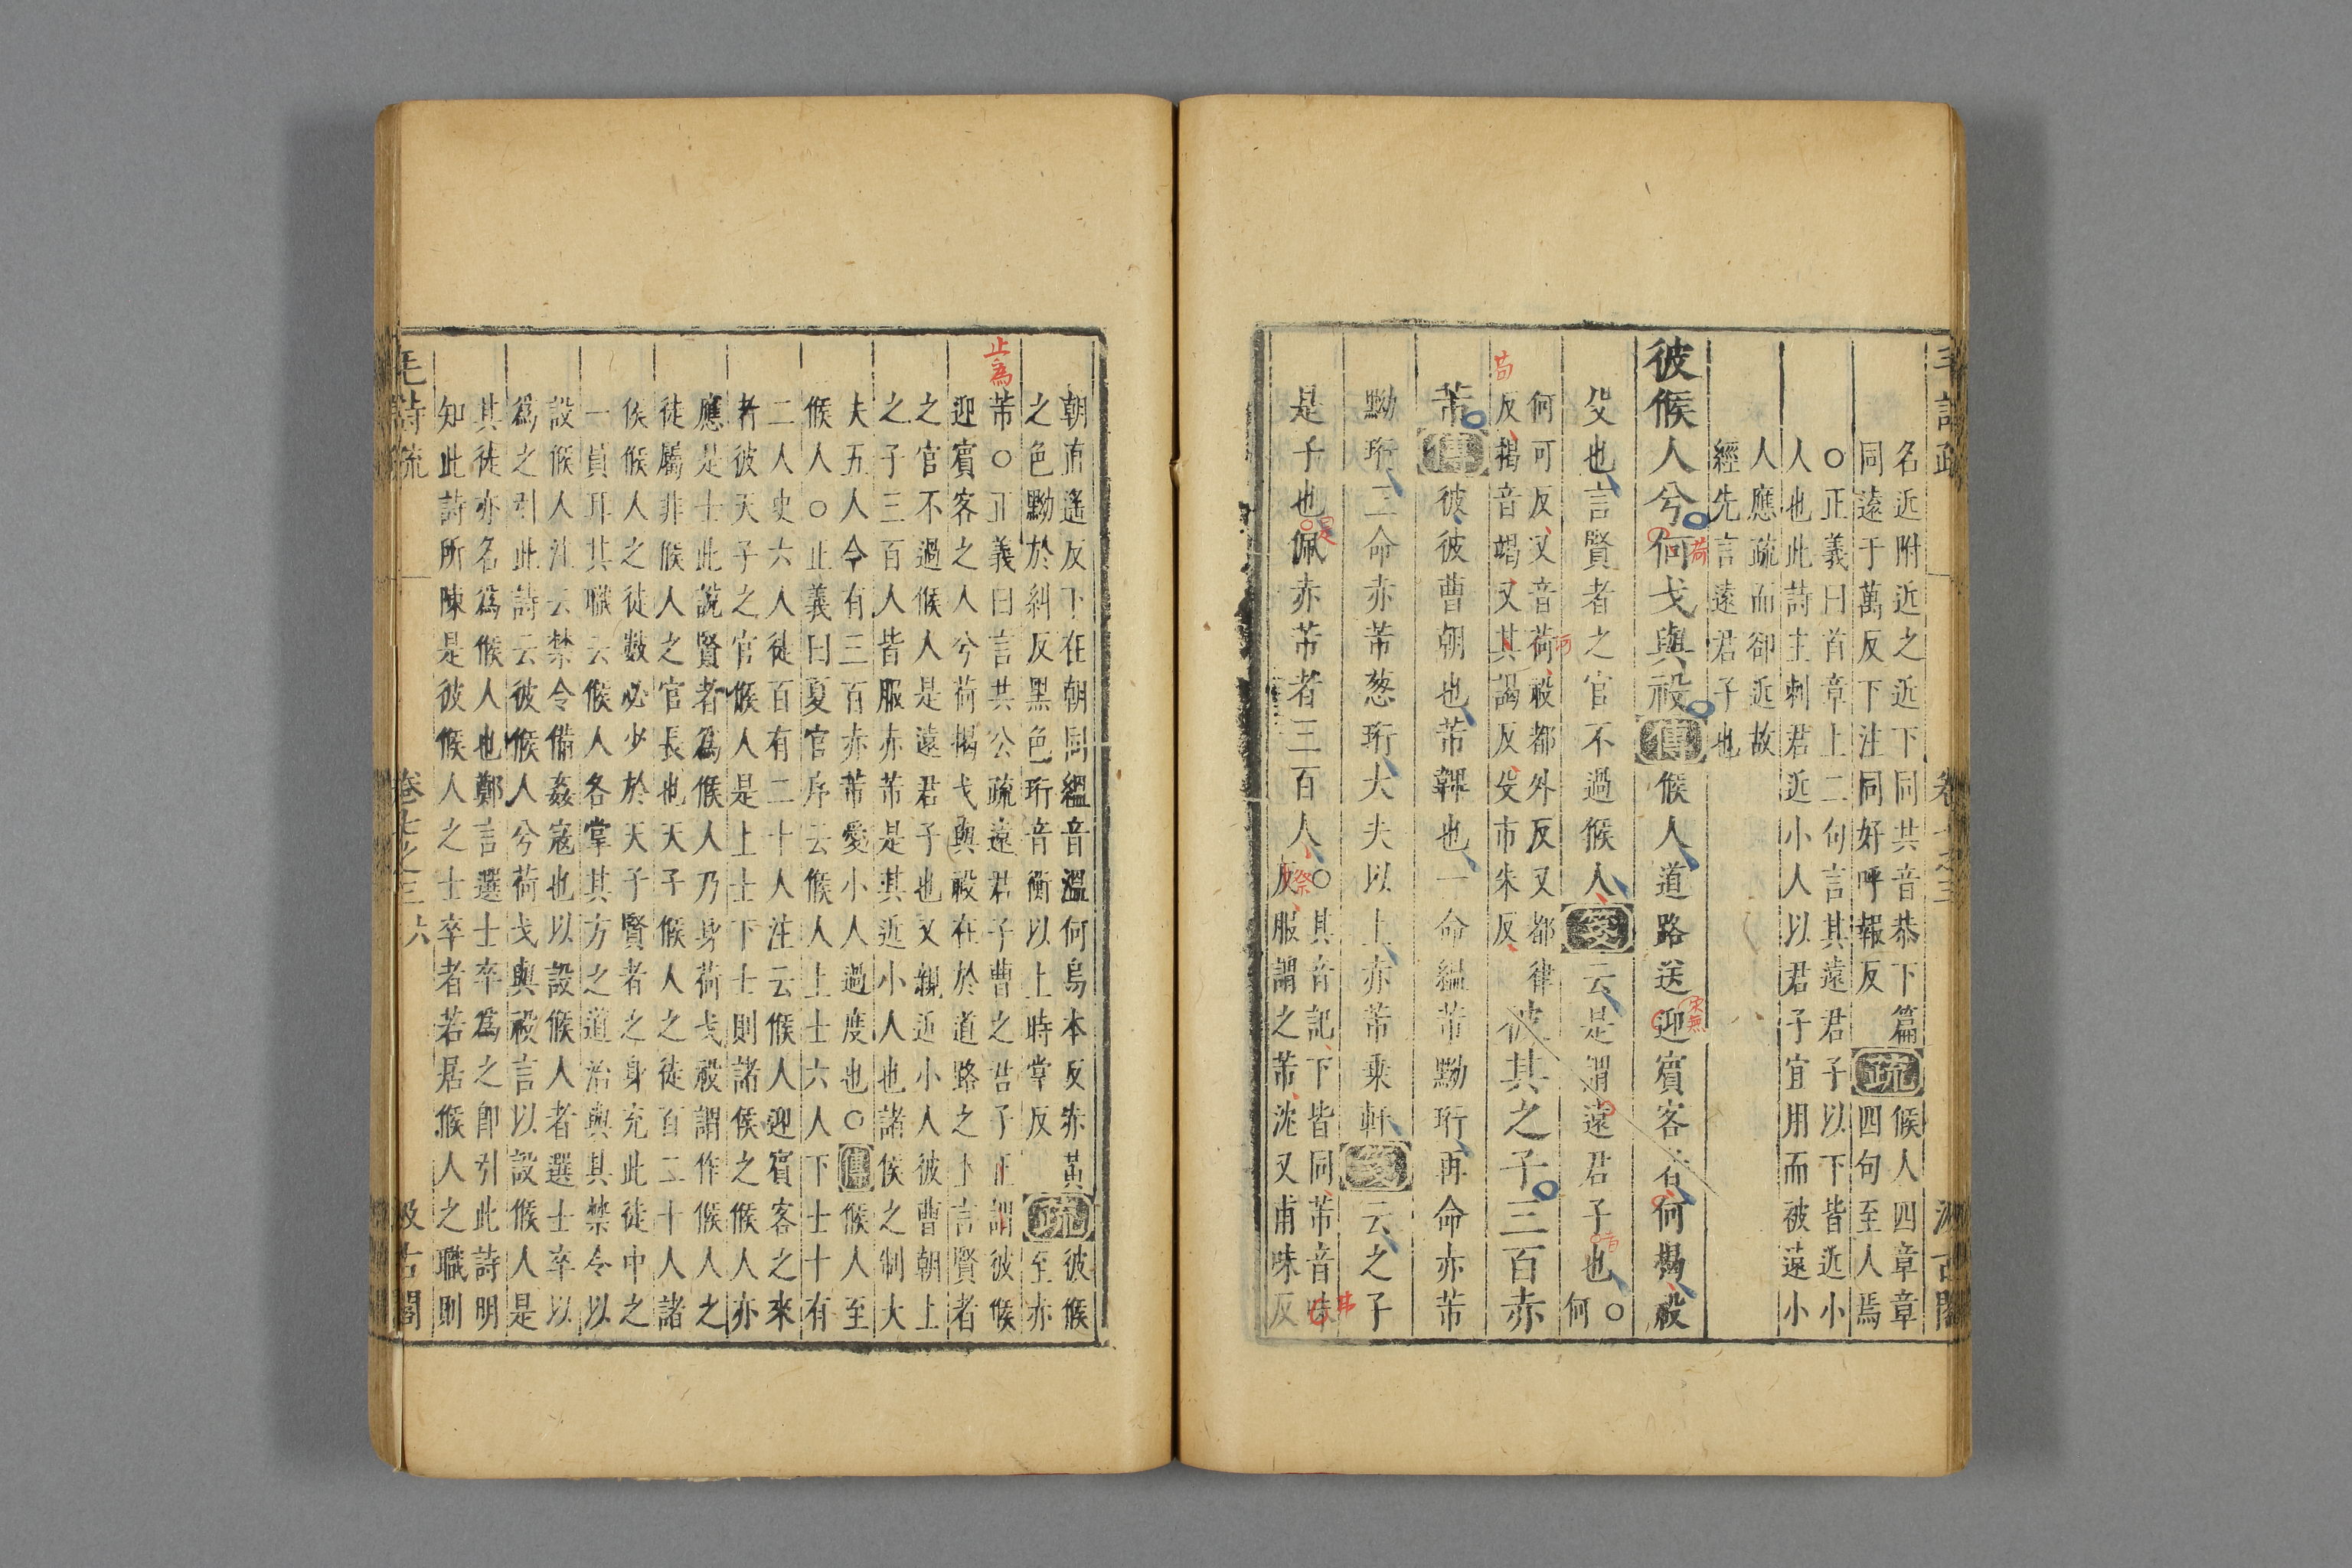 名近附近之近下同共音恭下篇
同遠于萬反下注同好呼報反
疏
候人四章章
四句至人焉
○正義曰首章上二句言其遠君子以下皆近小
人也此詩主刺君近小人以君子宜用而被遠小
人應疏而卻近故
經先言遠君子也
彼候人兮何戈與祋傳候人道路送迎賓客者何揭祋
殳也言賢者之官不過候人箋云是謂遠君子也○
何
何可反又音荷祋都外反又都律
反揭音竭又其謁反殳市朱反
彼其之子三百赤
芾傳彼彼曹朝也芾韠也一命縕芾黝珩再命赤芾
黝珩三命赤芾葱珩大夫以上赤芾乘軒箋云之子
是子也佩赤芾者三百人○其音記下皆同芾音味
反服謂之芾沈又甫味反
朝直遥反下在朝同縕音溫何烏本反赤黃
之色黝於糾反黑色珩音衡以上時掌反
疏
彼候
至赤
芾○正義曰言共公疏遠君子曹之君子正謂彼候
迎賓客之人兮荷揭戈與祋在於道路之上言賢者
之官不過候人是遠君子也又親近小人彼曹朝上
之子三百人皆服赤芾是其近小人也諸侯之制大
夫五人今有三百赤芾愛小人過度也○傳候人至
候人○正義曰夏官序云候人上士六人下士十有
二人史六人徒百有二十人注云候人迎賓客之來
者彼天子之官候人是上士下士則諸侯之候人亦
應是士此說賢者爲候人乃身荷戈祋謂作候人之
徒屬非候人之官長也天子候人之徒百二十人諸
侯候人之徒數必少於天子賢者之身充此徒中之
一員耳其職云候人各掌其方之道治與其禁令以
設候人注云禁令備姦寇也以設候人者選士卒以
爲之引此詩云彼候人兮荷戈與祋言以設候人是
其徒亦名爲候人也鄭言選士卒爲之卽引此詩明
知此詩所陳是彼候人之士卒者若居候人之職則
毛詩疏 卷七之三 六 汲古閣